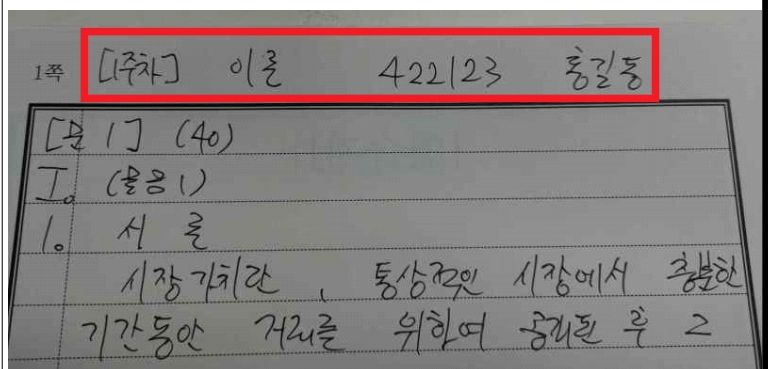 1쪽 [1주차] 이론 422123 홍길동
[문 1] (40)
I. (물음1)
1. 서론
시장가치란, 통상적인 시장에서 충분한
기간동안 거래를 위하여 공개된 후 그